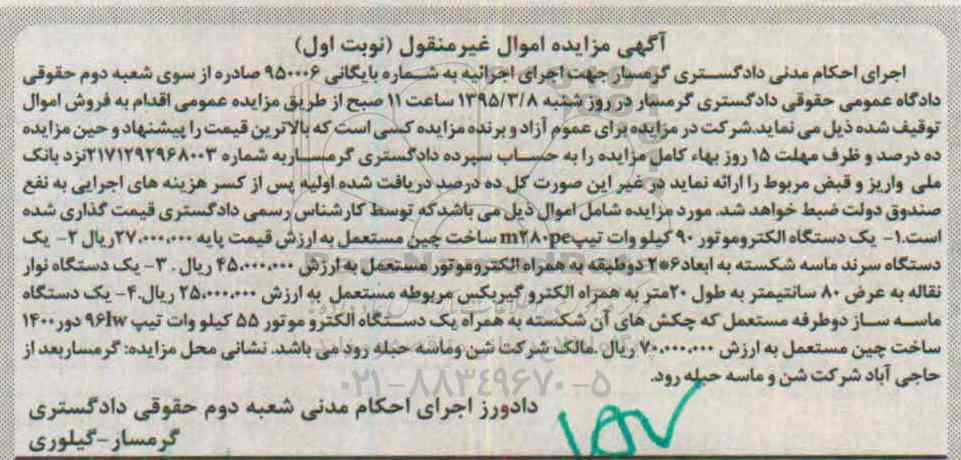 آگهی مزایده اموال غیرمنقول (نوبت اول)
اجرای احکام مدنی دادگستری گرمسار جهت اجرای اجرائیه به شماره بایگانی ۹۵۰۰۰۶ صادره از سوی شعبه دوم حقوقی
دادگاه عمومی حقوقی دادگستری گرمسار در روز شنبه ۱۳۹۵/۳/۸ ساعت ۱۱ صبح از طریق مزایده عمومی اقدام به فروش اموال
توقیف شده ذیل می نماید.شرکت در مزایده برای عموم آزاد و برنده مزایده کسی است که بالاترین قیمت را پیشنهاد و حین مزایده
ده درصد و ظرف مهلت ۱۵ روز بهاء کامل مزایده را به حساب سپرده دادگستری گرمسار به شماره ۲۱۷۱۲۹۲۹۶۸۰۰۳ نزد بانک
ملی واریز و قبض مربوط را ارائه نماید در غیر این صورت کل ده درصد دریافت شده اولیه پس از کسر هزینه های اجرایی به نفع
صندوق دولت ضبط خواهد شد. مورد مزایده شامل اموال ذیل می باشدکه توسط کارشناس رسمی دادگستری قیمت گذاری شده
است.۱- یک دستگاه الکتروموتور ۹۰ کیلو وات تیپm۲۸۰pe ساخت چین مستعمل به ارزش قیمت پایه ۲۷،۰۰۰،۰۰۰ریال ۲- یک
دستگاه سرند ماسه شکسته به ابعاد۶*۲ دوطبقه به همراه الکتروموتور مستعمل به ارزش ۴۵،۰۰۰،۰۰۰ ریال . ۳- یک دستگاه نوار
نقاله به عرض ۸۰ سانتیمتر به طول ۲۰متر به همراه الکترو گیربکس مربوطه مستعمل به ارزش ۲۵،۰۰۰،۰۰۰ ریال.۴- یک دستگاه
ماسه ساز دوطرفه مستعمل که چکش های آن شکسته به همراه یک دستگاه الکترو موتور ۵۵ کیلو وات تیپ ۹۶lw دور ۱۴۰۰
ساخت چین مستعمل به ارزش ۷۰،۰۰۰،۰۰۰ ریال .مالک شرکت شن وماسه حبله رود می باشد. نشانی محل مزایده: گرمساربعد از
حاجی آباد شرکت شن و ماسه حبله رود.
۰۲۱-۸۸۳۴۹۶۷۰-۵
دادورز اجرای احکام مدنی شعبه دوم حقوقی دادگستری
گرمسار-گیلوری